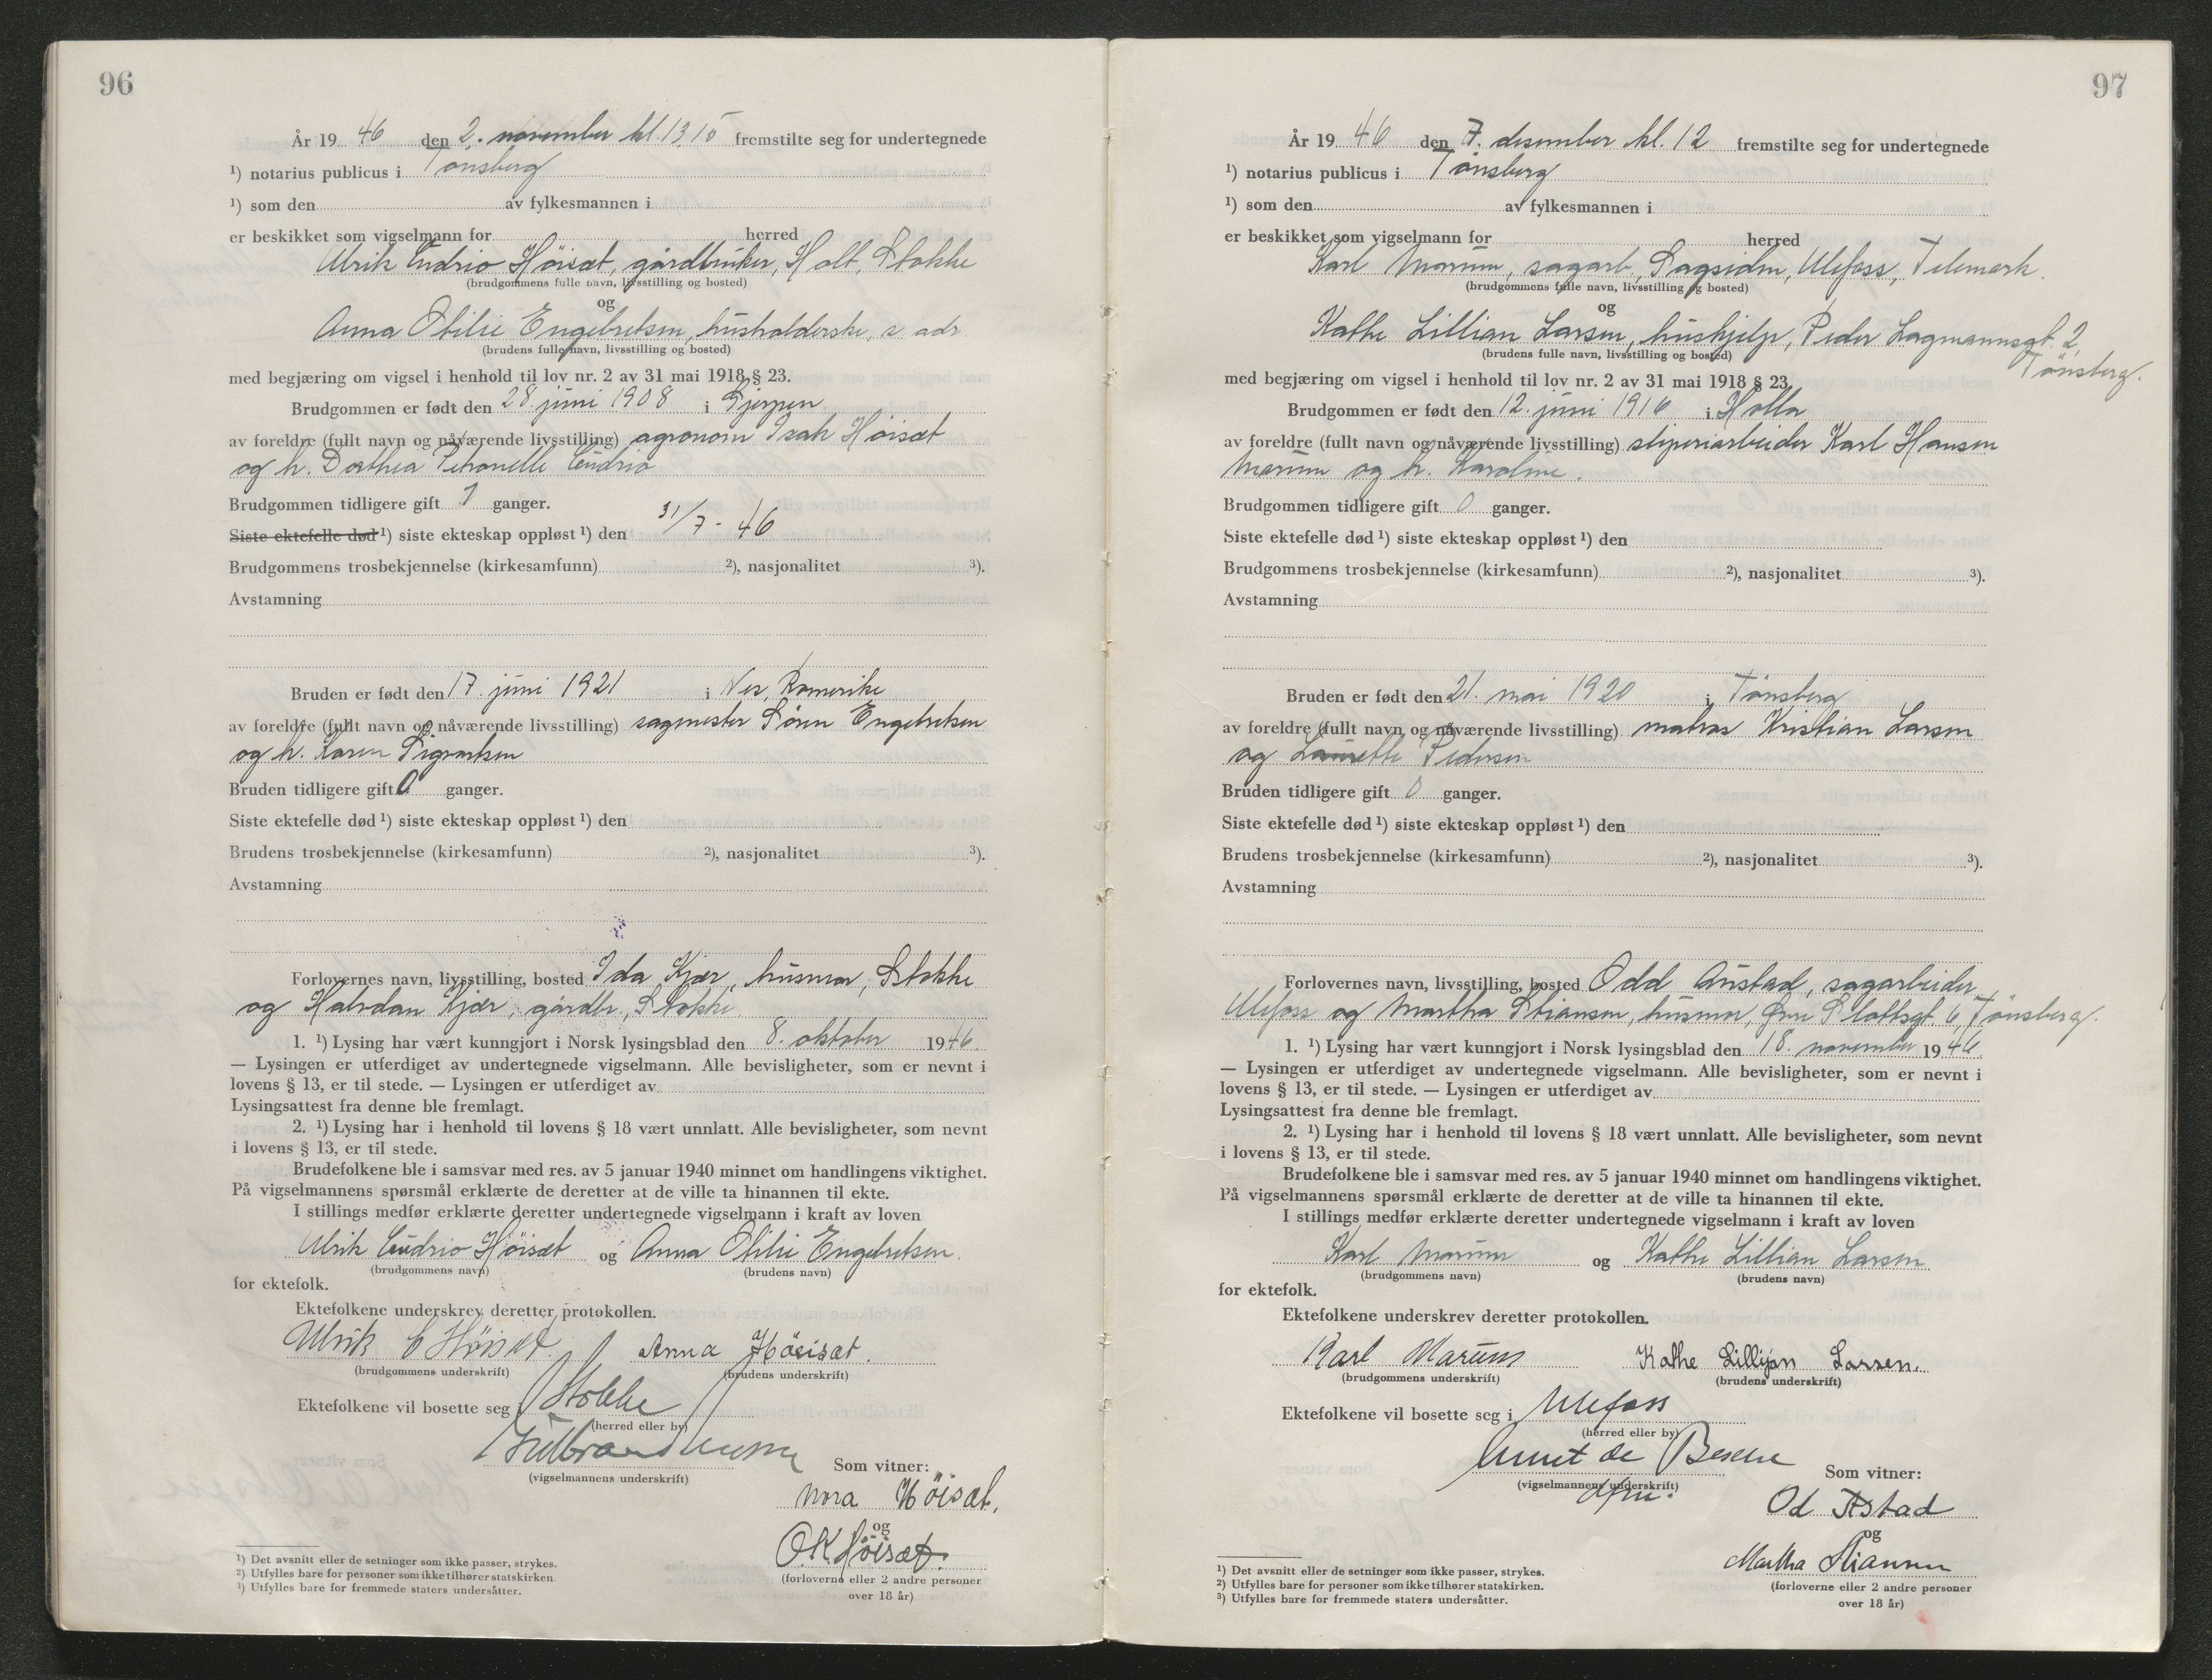 96
År 19 46 den 2. november kl. 13,15 fremstilte seg for undertegnede
¹) notarius publicus i Tønsberg
¹) som den av fylkesmannen i
er beskikket som vigselmann for herred
Ulrik Cudrio Höisæt, gårdbruker, Holt, Stokke
(brudgommens fulle navn, livsstilling og bosted)
og
Anna Otilie Engebretsen, husholderske, s. adr.
(brudens fulle navn, livsstilling og bosted)
med begjæring om vigsel i henhold til lov nr. 2 av 31 mai 1918 § 23.
Brudgommen er født den 28 juni 1908 i Gjerpen
av foreldre (fullt navn og nåværende livsstilling) agronom Isak Höisæt
og h. Dorthea Petronelle Cudrio
Brudgommen tidligere gift 1 ganger.
Siste ektefelle død ¹) siste ekteskap oppløst ¹) den 31/7 - 46
Brudgommens trosbekjennelse (kirkesamfunn) ²), nasjonalitet ³).
Avstamning
Bruden er født den 17. juni 1921 i Nes, Romerike
av foreldre (fullt navn og nåværende livsstilling) sagmester Søren Engebretsen
og h. Karen Sigvartsen
Bruden tidligere gift 0 ganger.
Siste ektefelle død ¹) siste ekteskap oppløst ¹) den
Brudens trosbekjennelse (kirkesamfunn) ²), nasjonalitet ³).
Avstamning
Forlovernes navn, livsstilling, bosted Ida Kjær, husmor, Stokke
og Halvdan Kjær, gårdbr, Stokke
1. ¹) Lysing har vært kunngjort i Norsk lysingsblad den 8. oktober 1946.
— Lysingen er utferdiget av undertegnede vigselmann. Alle bevisligheter, som er nevnt i
lovens § 13, er til stede. — Lysingen er utferdiget av
Lysingsattest fra denne ble fremlagt.
2. ¹) Lysing har i henhold til lovens § 18 vært unnlatt. Alle bevisligheter, som nevnt
i lovens § 13, er til stede.
Brudefolkene ble i samsvar med res. av 5 januar 1940 minnet om handlingens viktighet.
På vigselmannens spørsmål erklærte de deretter at de ville ta hinannen til ekte.
I stillings medfør erklærte deretter undertegnede vigselmann i kraft av loven
Ulrik Cudrio Höisæt og Anna Otilie Engebretsen.
(brudgommens navn) (brudens navn)
for ektefolk.
Ektefolkene underskrev deretter protokollen.
Ulrik C Höisæt Anna Höisæt.
(brudgommens underskrift) (brudens underskrift)
Ektefolkene vil bosette seg i Stokke
(herred eller by)
(vigselmannens underskrift)
Som vitner:
Nora Höisæt.
og
O.K Höisæt.
(forloverne eller 2 andre personer
over 18 år)
¹) Det avsnitt eller de setninger som ikke passer, strykes.
²) Utfylles bare for personer som ikke tilhører statskirken.
³) Utfylles bare for fremmede staters undersåtter.
97
År 19 46 den 7. desember kl. 12 fremstilte seg for undertegnede
¹) notarius publicus i Tønsberg
¹) som den av fylkesmannen i
er beskikket som vigselmann for herred
Karl Marum, sagarb., Sagsiden, Ulefoss, Telemark.
(brudgommens fulle navn, livsstilling og bosted)
og
Kathe Lillian Larsen, hushjelp, Peder Lagmannsgt. 2,
Tønsberg.
(brudens fulle navn, livsstilling og bosted)
med begjæring om vigsel i henhold til lov nr. 2 av 31 mai 1918 § 23.
Brudgommen er født den 12. juni 1916 i Holla
av foreldre (fullt navn og nåværende livsstilling) sliperiarbeider Karl Hansen
Marum og h. Karoline.
Brudgommen tidligere gift 0 ganger.
Siste ektefelle død ¹) siste ekteskap oppløst ¹) den
Brudgommens trosbekjennelse (kirkesamfunn) ²), nasjonalitet ³).
Avstamning
Bruden er født den 21. mai 1920 i Tønsberg
av foreldre (fullt navn og nåværende livsstilling) matros Kristian Larsen
og Laurette Pedersen
Bruden tidligere gift 0 ganger.
Siste ektefelle død ¹) siste ekteskap oppløst ¹) den
Brudens trosbekjennelse (kirkesamfunn) ²), nasjonalitet ³).
Avstamning
Forlovernes navn, livsstilling, bosted Odd Austad, sagarbeider
Ulefoss og Martha Stiansen, husmor, Øvre Slottsgt 6, Tønsberg.
1. ¹) Lysing har vært kunngjort i Norsk lysingsblad den 18. november 1946.
— Lysingen er utferdiget av undertegnede vigselmann. Alle bevisligheter, som er nevnt i
lovens § 13, er til stede. — Lysingen er utferdiget av
Lysingsattest fra denne ble fremlagt.
2. ¹) Lysing har i henhold til lovens § 18 vært unnlatt. Alle bevisligheter, som nevnt
i lovens § 13, er til stede.
Brudefolkene ble i samsvar med res. av 5 januar 1940 minnet om handlingens viktighet.
På vigselmannens spørsmål erklærte de deretter at de ville ta hinannen til ekte.
I stillings medfør erklærte deretter undertegnede vigselmann i kraft av loven
Karl Marum og Kathe Lillian Larsen
(brudgommens navn) (brudens navn)
for ektefolk.
Ektefolkene underskrev deretter protokollen.
Karl Marum Kathe Lillijan Larsen.
(brudgommens underskrift) (brudens underskrift)
Ektefolkene vil bosette seg i Ulefoss
(herred eller by)
de Besche
(vigselmannens underskrift)
Som vitner:
Od Astad
og
Martha Stiansen
(forloverne eller 2 andre personer
over 18 år)
¹) Det avsnitt eller de setninger som ikke passer, strykes.
²) Utfylles bare for personer som ikke tilhører statskirken.
³) Utfylles bare for fremmede staters undersåtter.